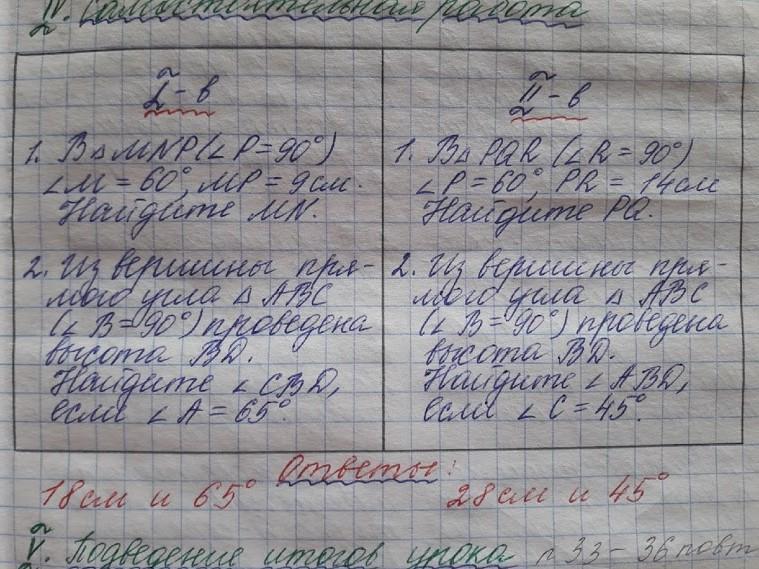 IV. Самостоятельная работа
I - в
1. В △ MNP (∠ P = 90°)
∠M = 60°, MP = 9 см.
Найдите MN.
2. Из вершины пря-
мого угла △ ABC
(∠ B = 90°) проведена
высота BD.
Найдите ∠ CBD,
если ∠ A = 65°.
II - в
1. В △ PQR (∠ R = 90°)
∠P = 60°, PR = 14 см
Найдите PQ.
2. Из вершины пря-
мого угла △ ABC
(∠ B = 90°) проведена
высота BD.
Найдите ∠ ABD,
если ∠ C = 45°.
Ответы:
18 см и 65°
28 см и 45°
V. Подведение итогов урока п 33 - 36 повт